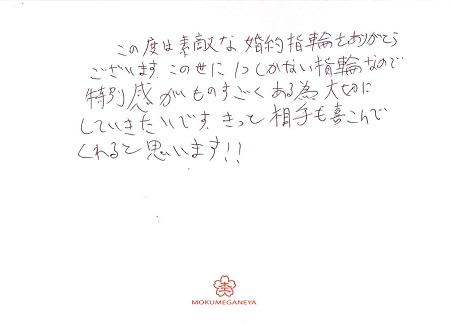 この度は素敵な婚約指輪をありがとう
ございます。この世に1つしかない指輪なので
特別感がものすごくある為大切に
していきたいです。きっと相手も喜こんで
くれると思います!!
杢
MOKUMEGANEYA